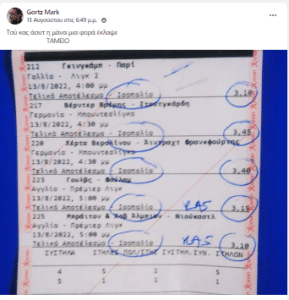 Gortz Mark
13 Αυγούστου στις 6:49 μ.μ.
Τού κος άσιτ η μάνα μια φορά έκλαψε
ΤΑΜΕΙΟ
212 Γκενγκάμπ - Παρί
Γαλλία - Λιγκ 2
13/8/2022, 4:00 μμ
Τελικό Αποτέλεσμα - Ισοπαλία 3,10
217 Βέρντερ Βρέμης - Στουτγκάρδη
Γερμανία - Μπουντεσλίγκα
13/8/2022, 4:30 μμ
Τελικό Αποτέλεσμα - Ισοπαλία 3,45
220 Χέρτα Βερολίνου - Άιντραχτ Φρανκφούρτης
Γερμανία - Μπουντεσλίγκα
13/8/2022, 4:30 μμ
Τελικό Αποτέλεσμα - Ισοπαλία 3,40
223 Γουλβς - Φούλαμ
Αγγλία - Πρέμιερ Λιγκ
13/8/2022, 5:00 μμ
Τελικό Αποτέλεσμα - Ισοπαλία 3,15
225 Μπράιτον & Χοβ Άλμπιον - Νιούκαστλ
Αγγλία - Πρέμιερ Λιγκ
13/8/2022, 5:00 μμ
Τελικό Αποτέλεσμα - Ισοπαλία 3,10
ΣΥΣΤΗΜΑ ΣΤΗΛΕΣ ΠΟΛ/ΣΤΗΣ ΣΥΣΤΗΜ. ΣΥΝ. ΣΤΗΛΩΝ
4 5 1 5
5 1 1 1